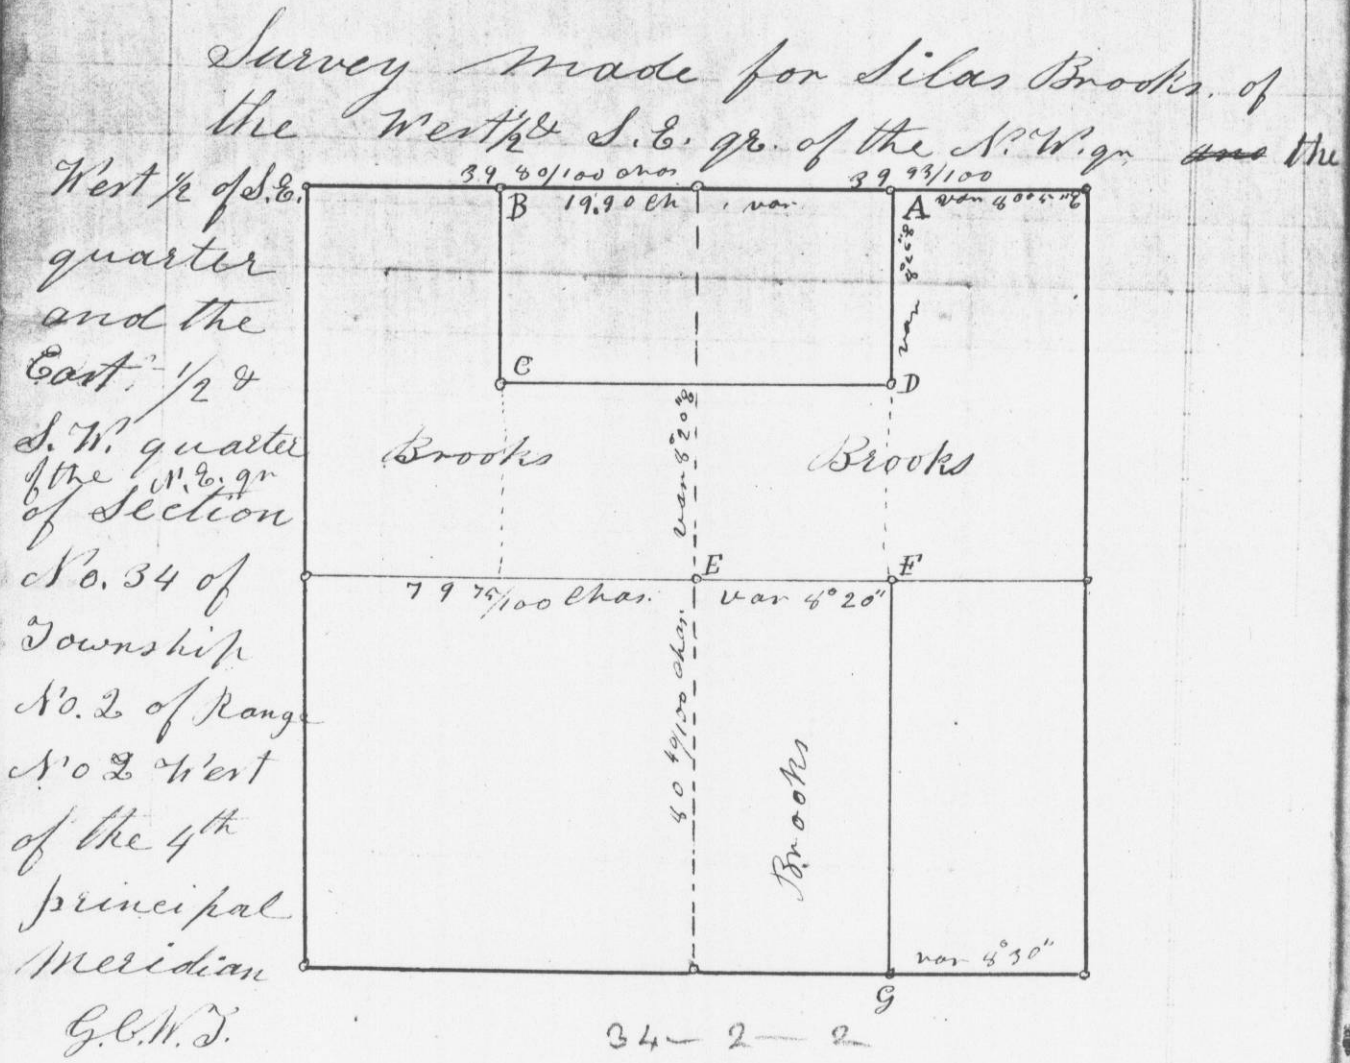 Survey made for Silas Brooks. of
the West ½ & S.E. qr. of the N.W. qr and the
West ½ of S.E.
quarter
and the
East ½ &
S.W. quarter
of the N.E. qr
of Section
No. 34 of
Township
No. 2 of Range
No 2 West
of the 4th
principal
Meridian
G.C.W.T.
39 80/100 chas
39 93/100
B
19.90 Ch
var
A
var
var
C
D
Brooks
var 8°20"
Brooks
E
F
79 75/100 Chas.
var 8°20"
80 49/100 chas.
Brooks
var 8°30"
G
34 - 2 - 2